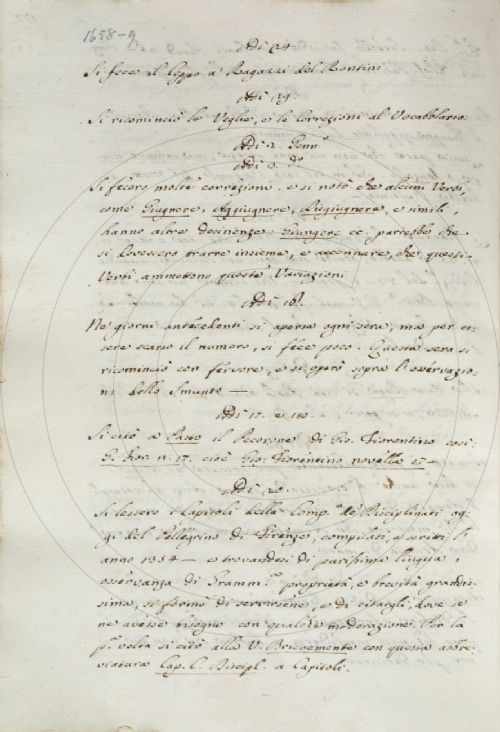 1658-9
Adi 24
Si fece il leppo a Ragazzi del Bontini
Adi 29.
Si ricominciò le Veglie, e le Correzioni al Vocabolario
Adi 2. Genn.o
Adi 3. do
Si fecero molte correzione, e si notò che alcuni Verbi,
come Giugnere, Aggiugnere, Raggiugnere, e simili,
hanno altre desinenze Giungere ec. parrebbe che
si dovessero trarre insieme, e accennare, che questi
Verbi ammettono queste Variazioni
Adi 16.
Ne giorni antecedenti si aperse ogni sera, ma per es-
sere scarso il numero, si fece poco. Questa sera si
ricominciò con fervore, e si operò sopra l'osservazio-
ni dello Smunto —
Adi 17. e 18.
Si citò a Pasto il Pecorone di Gio. Fiorentino così
G. Fior. n. 17. cioè Gio. Fiorentino novella 17 —
Adi 20.
Si lessero i Capitoli della Comp. de Disciplinati og-
gi del Pellegrino di Firenze, compilati, e scritti l'
anno 1354 — e trovandosi di purissima lingua,
osservanza di Gramm.ca proprietà, e brevità grandis-
sima, si fermò di servirsene, e di citargli, dove se
ne avesse bisogno con qualche moderazione. Per la
p.a volta si citò alla V. Brevemente con questa abbre-
viatura Cap. C. Discipl. a Capitoli.